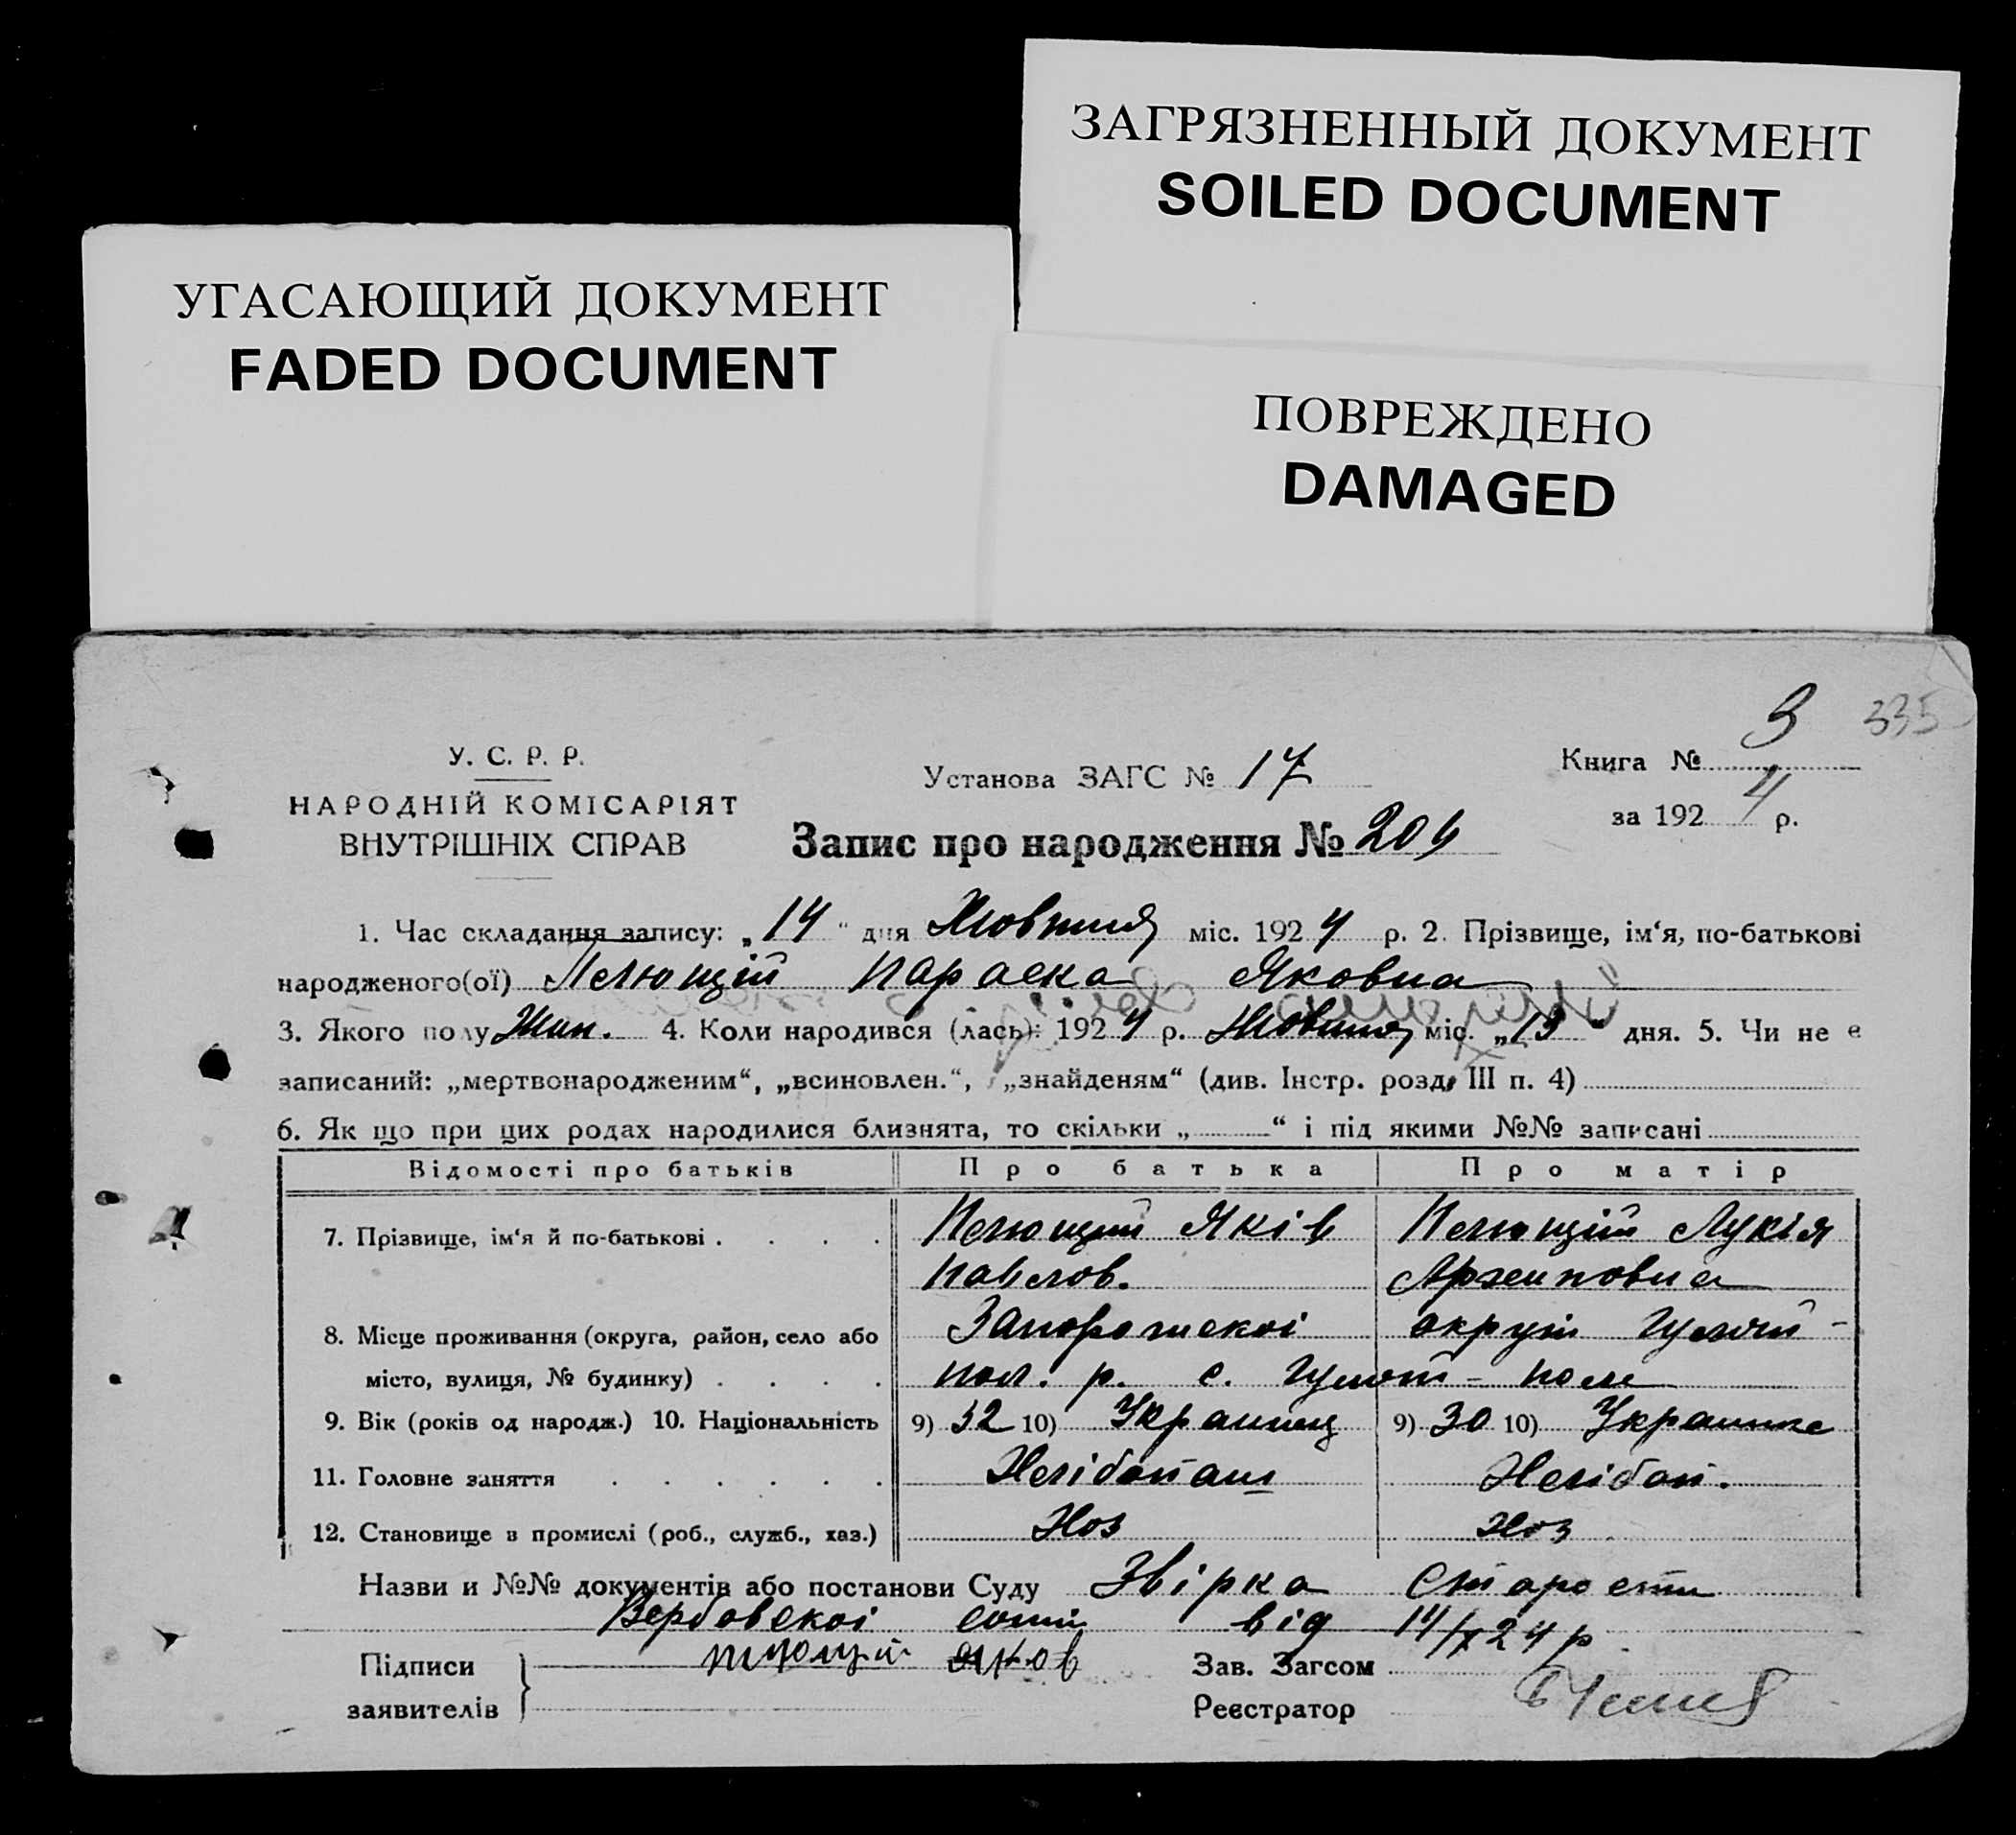 ЗАГРЯЗНЕННЫЙ ДОКУМЕНТ
SOILED DOCUMENT
УГАСАЮЩИЙ ДОКУМЕНТ
FADED DOCUMENT
ПОВРЕЖДЕНО
DAMAGED
335
У. С. Р. Р.
НАРОДНІЙ КОМІСАРІЯТ
ВНУТРІШНІХ СПРАВ
Установа ЗАГС № 17
Книга № 3
за 1924 р.
Запис про народження № 204
1. Час складання запису: „14“ дня Жовтня міс. 1924 р. 2. Прізвище, ім‘я, по-батькові
народженого(ої) Пелющій Параска Яковна
3. Якого полу Жин. 4. Коли народився (лась): 1924 р. Жовтня міс. „13“ дня. 5. Чи не є
записаний: „мертвонародженим“, „всиновлен.“, „знайденям“ (див. Інстр. розд. III п. 4)
6. Як що при цих родах народилися близнята, то скільки „ “ і під якими №№ записані
Відомості про батьків Про батька Про матір
7. Прізвище, ім‘я й по-батькові . . . . Пелющий Яків Пелющій Лукія
Павлов. Архиповна
8. Місце проживання (округа, район, село або Запорожскоі округи Гуляй-
місто, вулиця, № будинку) . . . . пол. р. с. Гуляй-поле
9. Вік (років од народж.) 10. Національність 9) 32 10) Украинец 9) 30 10) Украинка
11. Головне заняття . . . . . . Хлібопаш Хлібоп.
12. Становище в промислі (роб., служб., хаз.) Хоз Хоз
Назви и №№ документів або постанови Суду Звірка Старости
Вербовскоі сотні від 14/X 24 р.
Підписи Яков Зав. Загсом
заявителів Реєстратор